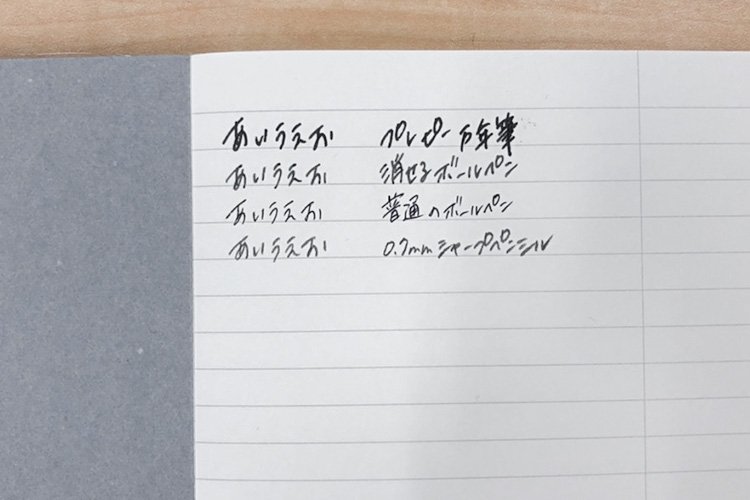 あいうえお プレピー万年筆
あいうえお 消せるボールペン
あいうえお 普通のボールペン
あいうえお 0.7mmシャープペンシル